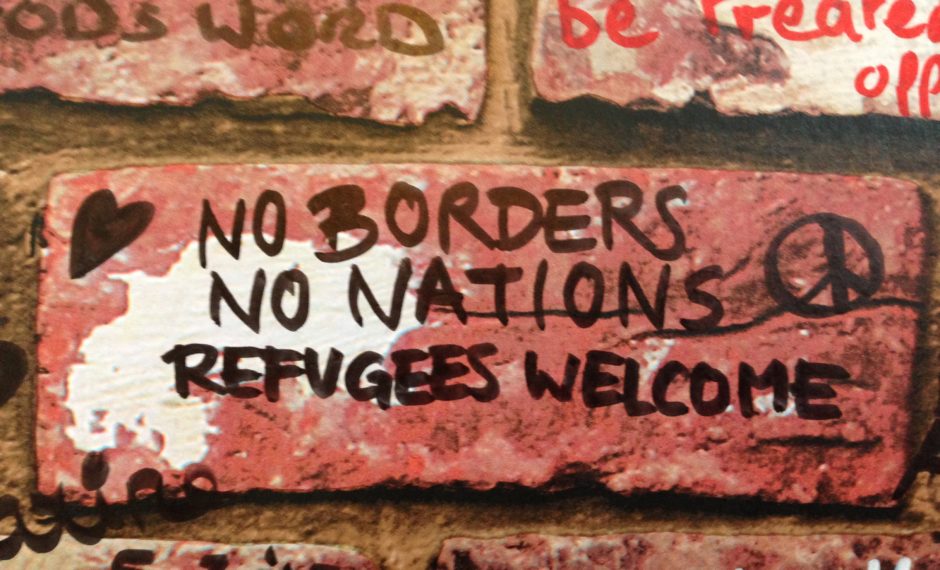 WORD
be treated
NO BORDERS
NO NATIONS
REFUGEES WELCOME